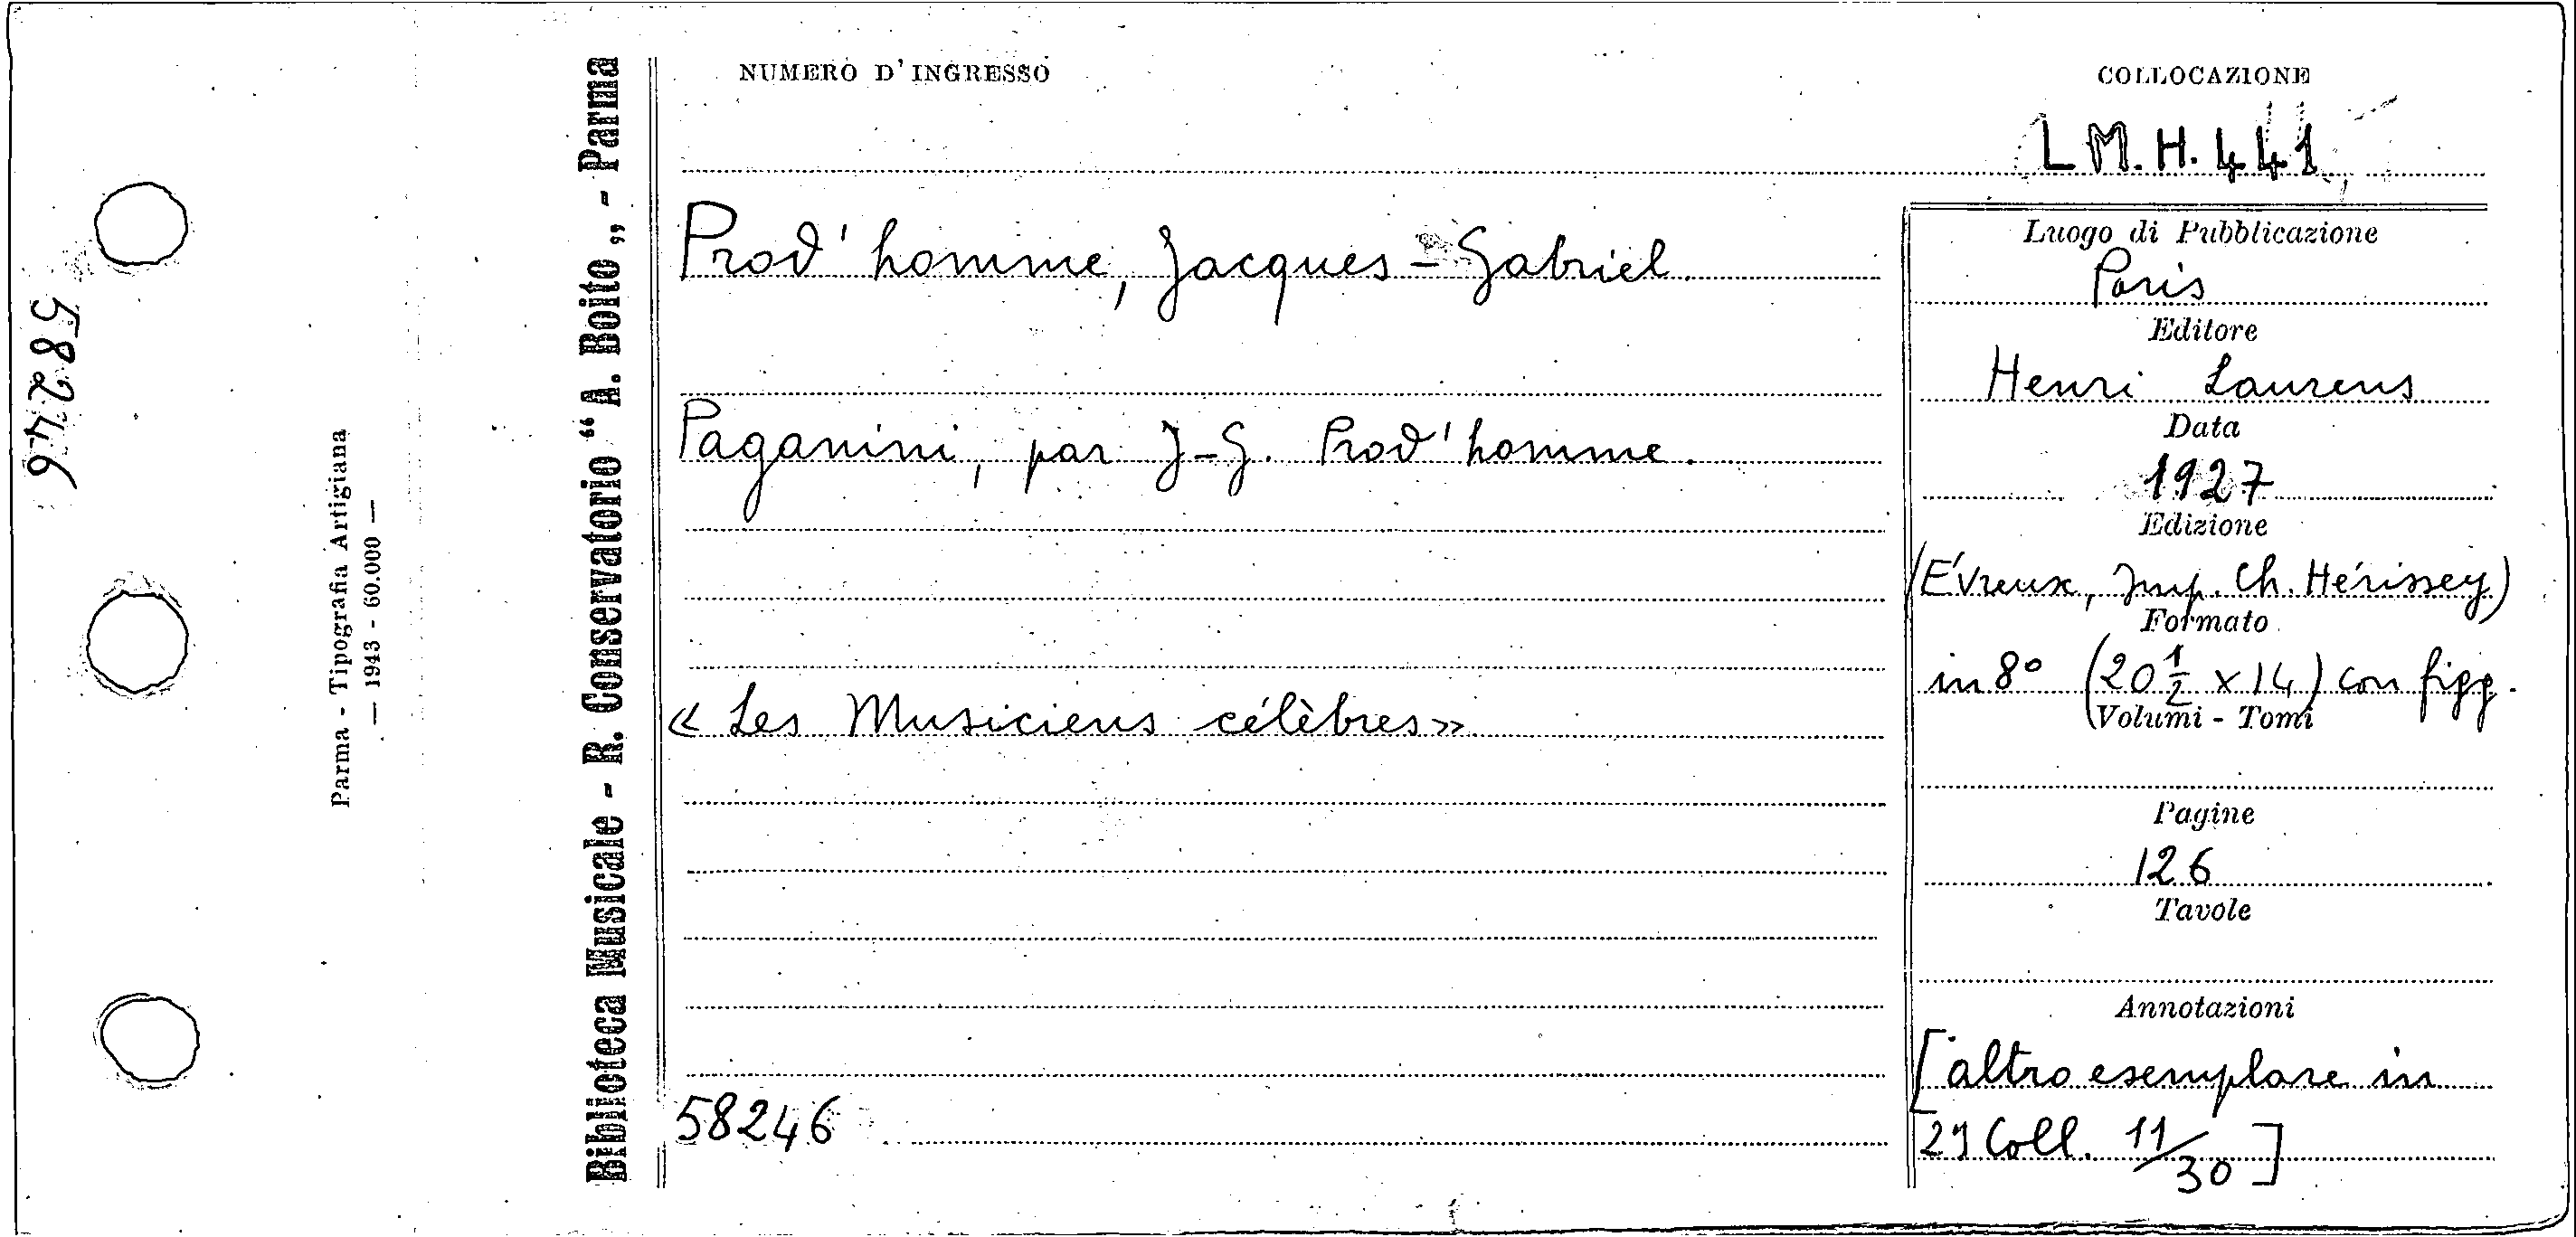 58246
Parma - Tipografia Artigiana
— 1943 - 60.000 —
Biblioteca Musicale - R. Conservatorio “ A. Boito „ - Parma
NUMERO D' INGRESSO
COLLOCAZIONE
L M. H. 441
Prod' homme, Jacques - Gabriel.
Paganini, par J-G. Prod'homme.
« Les Musiciens célèbres »
58246
Luogo di Pubblicazione
Paris
Editore
Henri Laurens
Data
1927
Edizione
(Évreux, Imp. Ch. Hérissey)
Formato
in 8° (20 1/2 x 14) con figg.
Volumi - Tomi
Pagine
126
Tavole
Annotazioni
[altro esemplare in
Coll. 11/30]